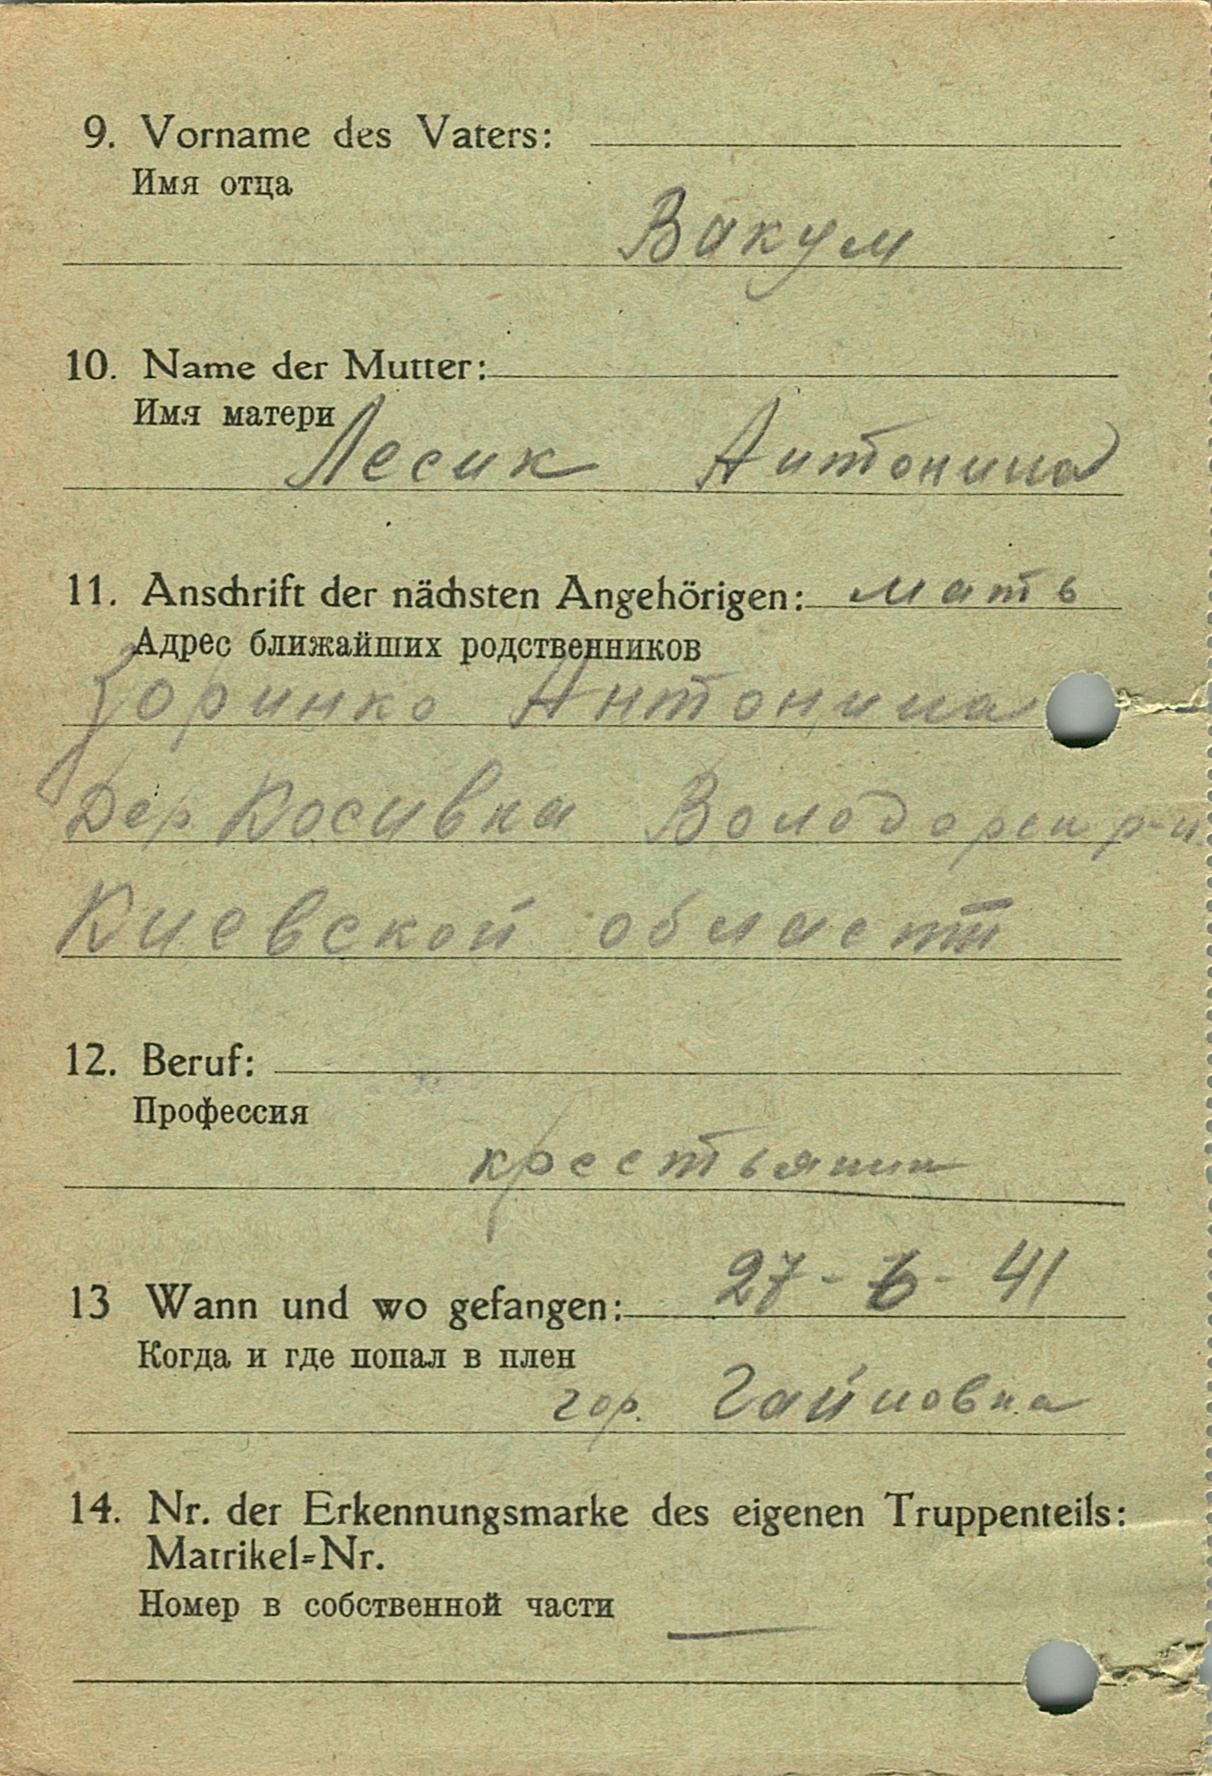 9. Vorname des Vaters:
Имя отца
Вакум
10. Name der Mutter:
Имя матери
Лесик Антонина
11. Anschrift der nächsten Angehörigen: мать
Адрес ближайших родственников
Зоринко Антонина
Дер Косивка Володорск р-н
Киевской области
12. Beruf:
Профессия
крестьянин
13 Wann und wo gefangen: 27-6-41
Когда и где попал в плен
гор. Гайновка
14. Nr. der Erkennungsmarke des eigenen Truppenteils:
Matrikel=Nr.
Номер в собственной части